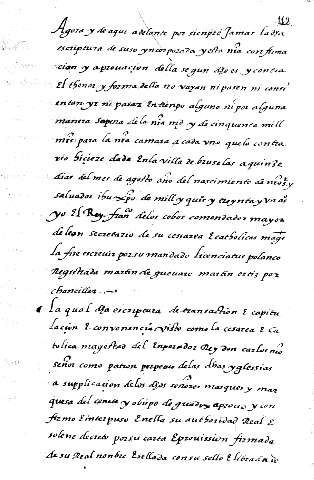 112
Agora y de aqui adelante por siempre Jamas la dha
escriptura de suso yncorporada y esta nra confirma
cion y aprovacion della segun dho es y contra
El thenor y forma della no vayan ni pasen ni consi
entan yr ni pasar En tiempo alguno ni por alguna
manera so pena de la nra mrd y de cinquenta mill
mrs para la nra camara a cada uno que lo contra
rio hiziere dada En la villa de bruselas a quinze
dias del mes de agosto año del nascimiento de nro
salvador ihu xpo de mill y qujos y treynta y un años
yo El Rey. franco de los cobos comendador mayor
de leon secretario de su cesarea E catholicas magt
la fize escreuir por su mandado licenciatus polanco
Registrada martin de guevara martin ortiz por
chanciller . —
la qual dha escriptura de transaction E capitu
lacion E conveniencia visto como la cesarea E ca
tolica magestad del Enperador Rey don carlos nro
señor como patron perpetuo de las dhas yglesias
a supplicacion de los dhos señores marques y mar
quesa del cenete y obispo de guadix aprovo y con
firmo E interpuso En ella su authoridad Real E
solene decreto por su carta E provission firmada
de su Real nonbre E sellada con su sello E librada de